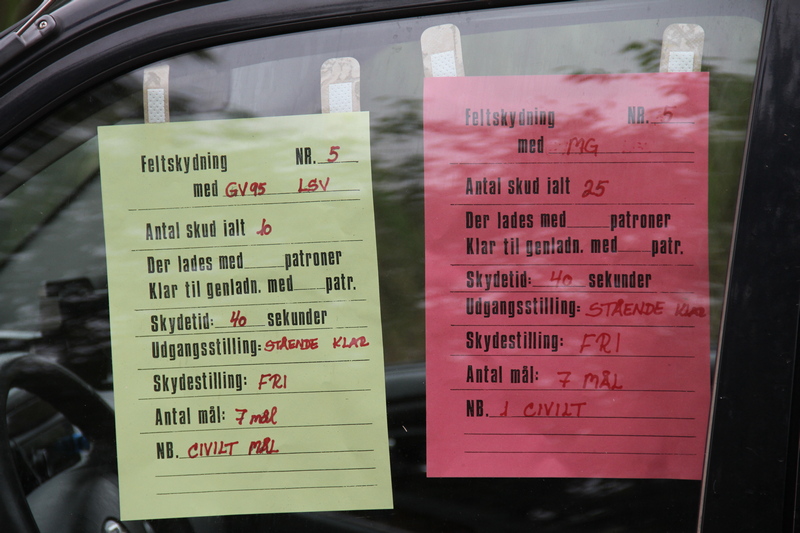 Feltskydning NR. 5
med GV95 LSV
Antal skud ialt 10
Der lades med patroner
Klar til genladn. med patr.
Skydetid: 40 sekunder
Udgangsstilling: STÅENDE KLAR
Skydestilling: FRI
Antal mål: 7 mål
NB. CIVILT MÅL
Feltskydning NR. 5
med MG
Antal skud ialt 25
Der lades med patroner
Klar til genladn. med patr.
Skydetid: 40 sekunder
Udgangsstilling: STÅENDE KLAR
Skydestilling: FRI
Antal mål: 7 MÅL
NB. 1 CIVILT